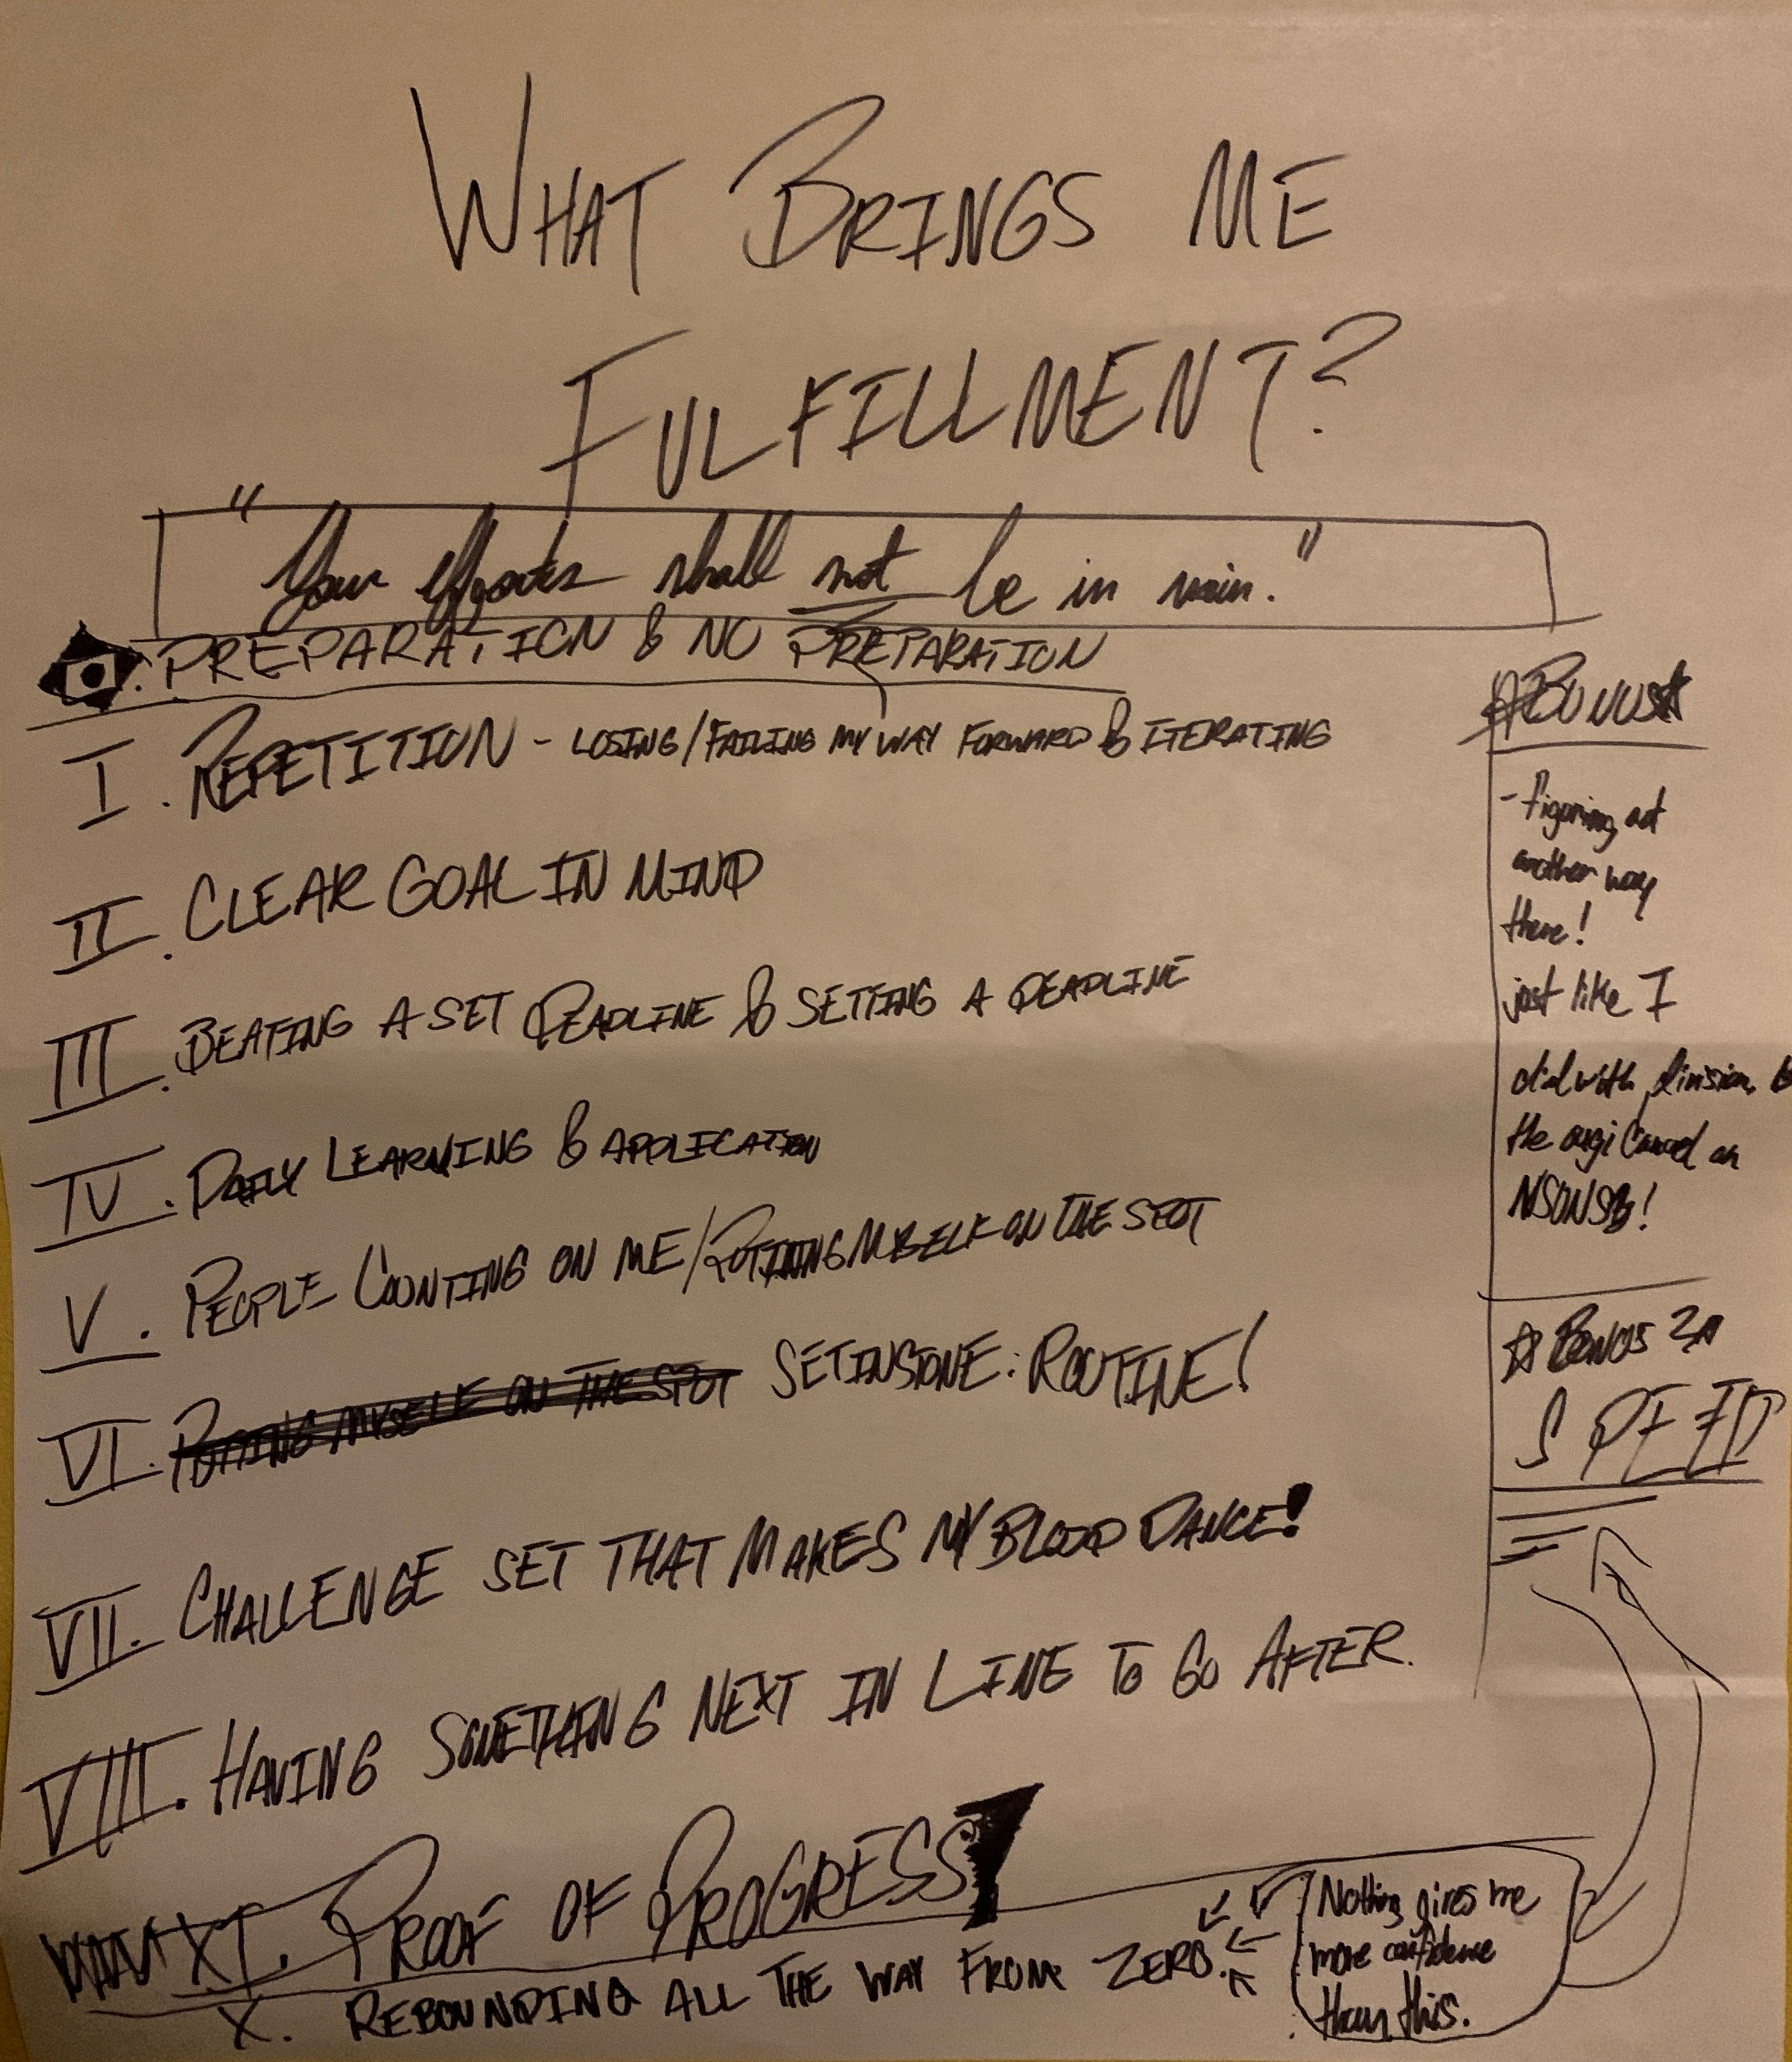 WHAT BRINGS ME
FULFILLMENT?
"Your efforts shall not be in vain."
PREPARATION & NO PREPARATION
I. REPETITION - LOSING/FAILING MY WAY FORWARD & ITERATING
II. CLEAR GOAL IN MIND
III. BEATING A SET DEADLINE & SETTING A DEADLINE
IV. DAILY LEARNING & APPLICATION
V. PEOPLE COUNTING ON ME/PUTTING MYSELF ON THE SPOT
VI. PUTTING MYSELF ON THE SPOT SET IN STONE: ROUTINE!
VII. CHALLENGE SET THAT MAKES MY BLOOD DANCE!
VIII. HAVING SOMETHING NEXT IN LINE TO GO AFTER.
XI. PROOF OF PROGRESS
X. REBOUNDING ALL THE WAY FROM ZERO.
Nothing gives me
more confidence
than this.
BONUS
- figuring out
another way
there!
just like I
did with division &
the
BONUS 2
SPEED